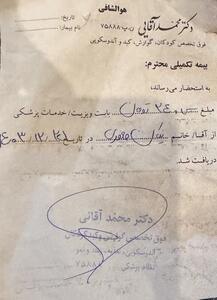 هوالشافی
دکتر محمد آقایی ن.پ ۷۵۸۸۸
تاریخ:
نام بیمار:
فوق تخصص کودکان، گوارش، کبد و آندوسکوپی
بیمه تکمیلی محترم:
به استحضار می‌رساند،
مبلغ تومان بابت ویزیت/خدمات پزشکی
از آقا/خانم در تاریخ ۱۴۰۳،۱۲،۱۴
دریافت شد.
دکتر محمد آقائی
فوق تخصص گوارش و کبد کودکان
۷۵۸۸۸